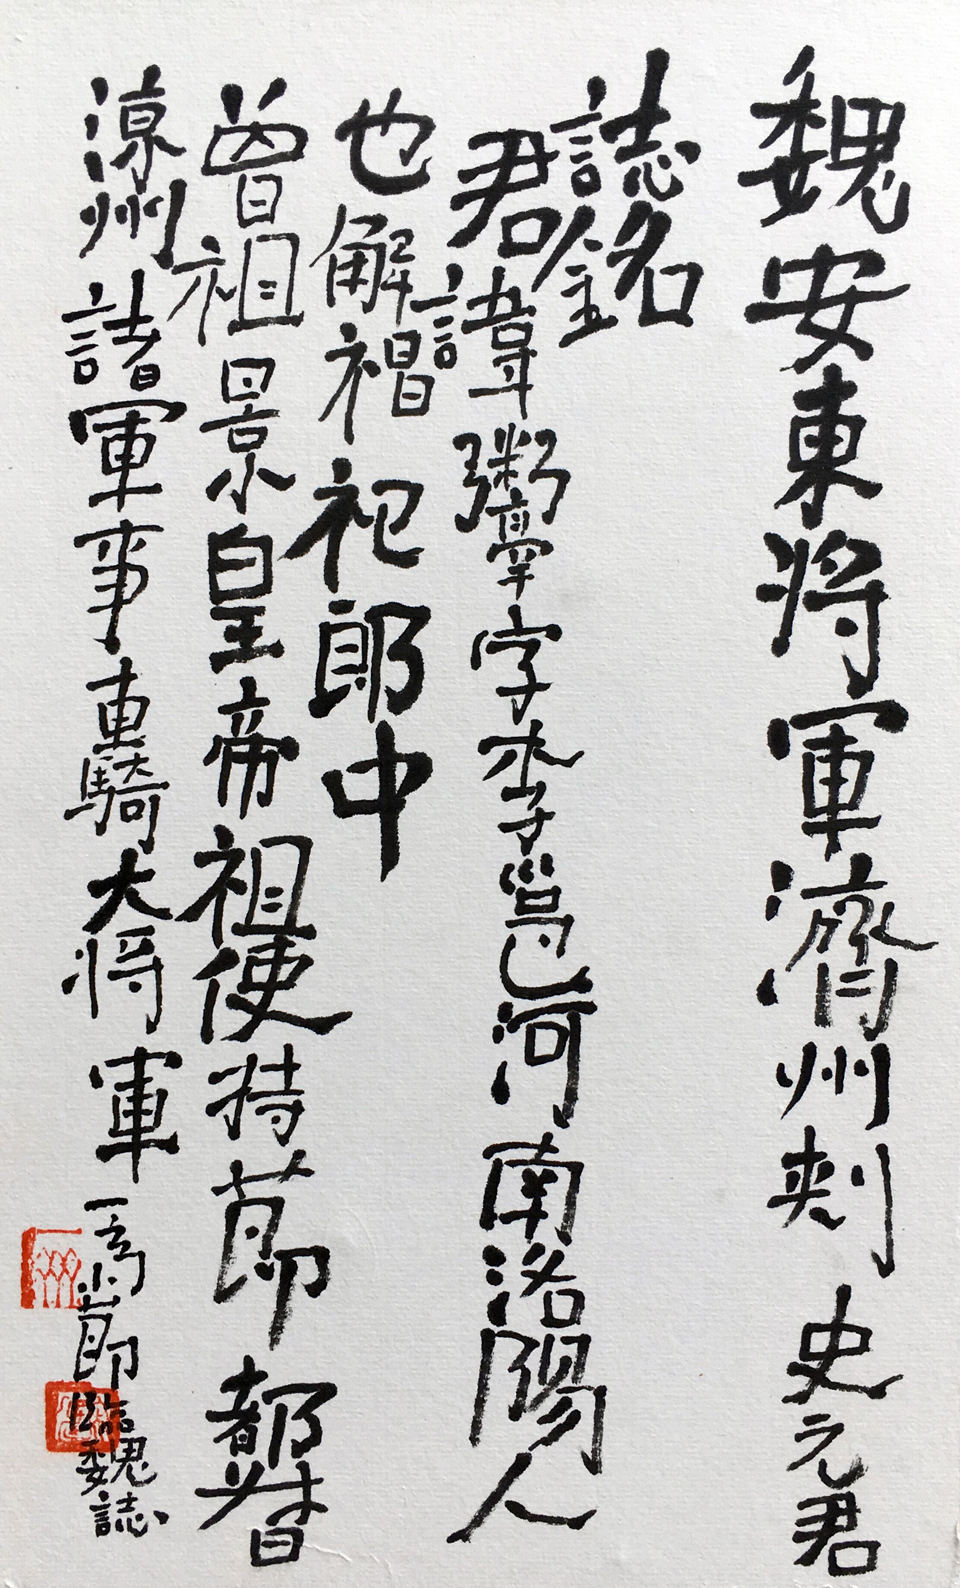 魏安東將軍濟州刺史元君
誌銘
君諱鸑字季邕河南洛陽人
也解褐祀郎中
曾祖景皇帝祖使持節都督
涼州諸軍事車騎大將軍
節臨魏誌